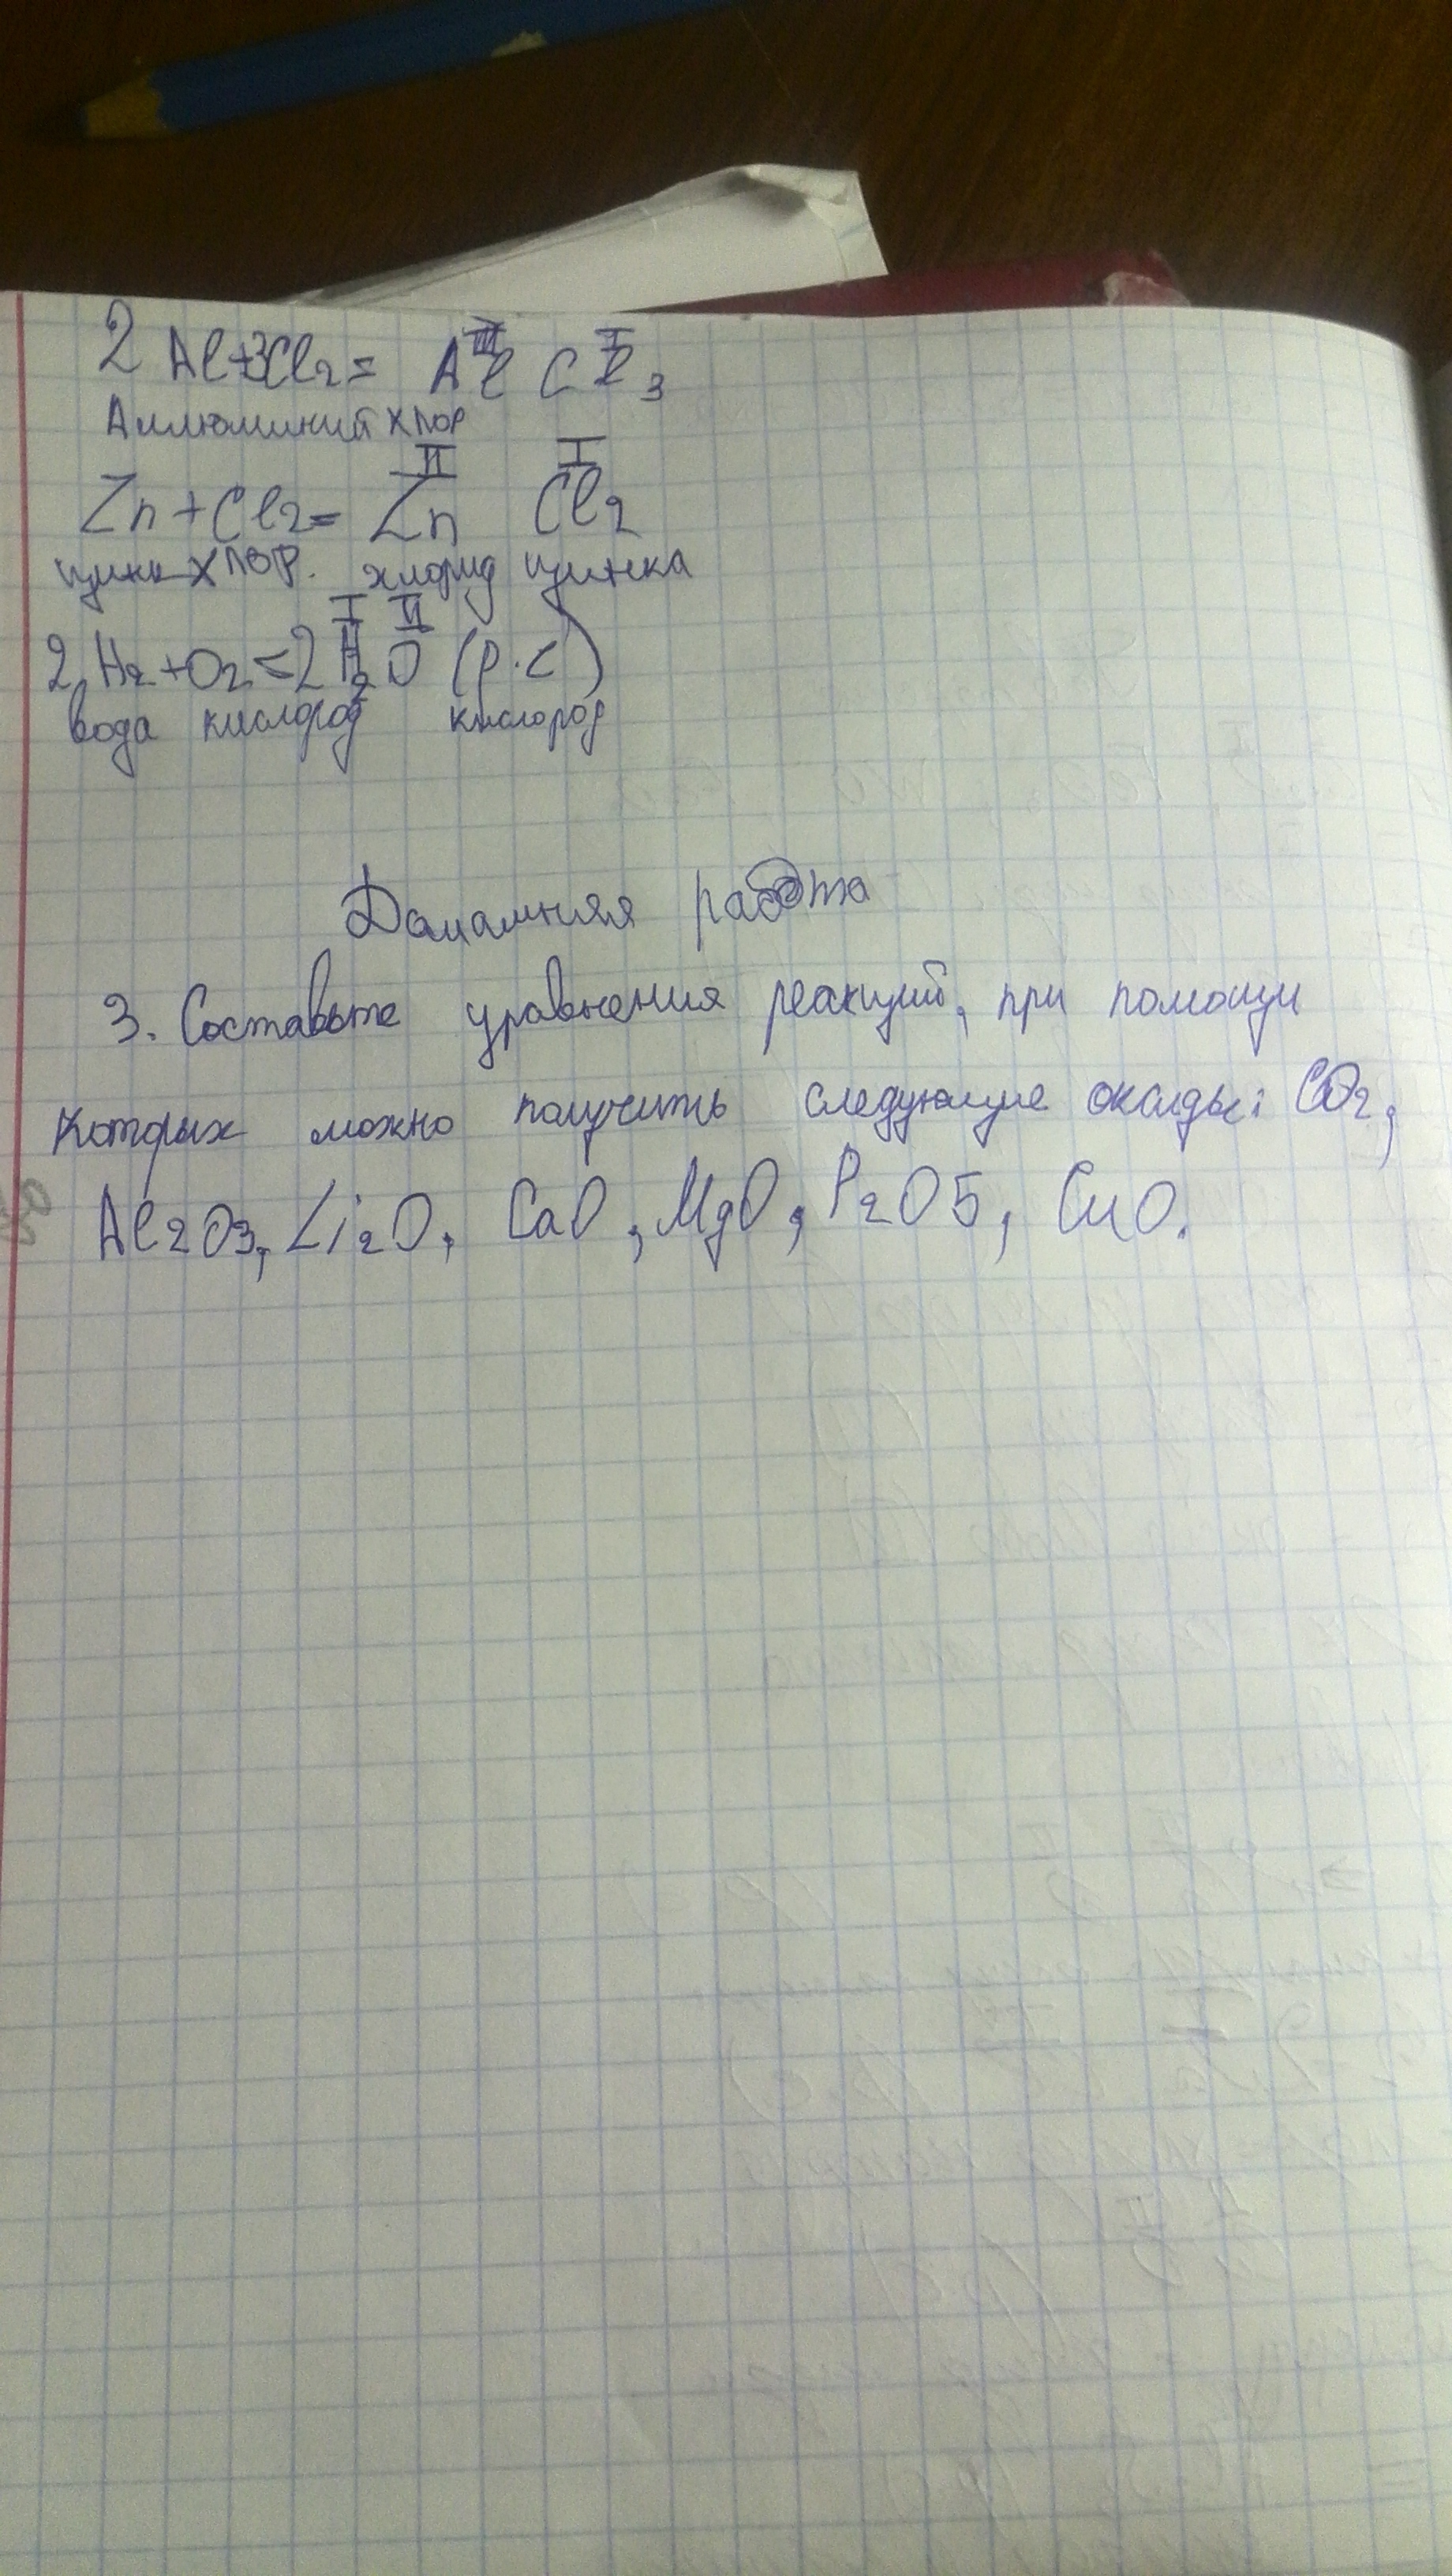 2 Al+3Cl2= Al III Cl I 3
Аллюминий хлор
II I
Zn+Cl2= Zn Cl2
цинк хлор. хлорид цинка
I II
2H2+O2=2H2O (р.с)
вода кислород кислород
Домашняя работа
3. Составьте уравнения реакций, при помощи
которых можно получить следующие оксиды: CO2,
Al2O3, Li2O, CaO, MgO, P2O5, CuO.